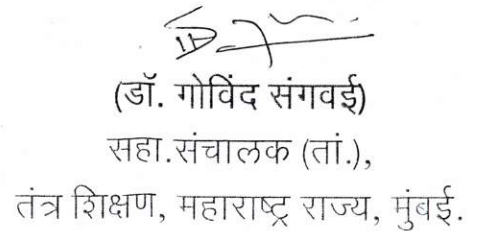 (डॉ. गोविंद संगवई)
सहा.संचालक (तां.),
तंत्र शिक्षण, महाराष्ट्र राज्य, मुंबई.